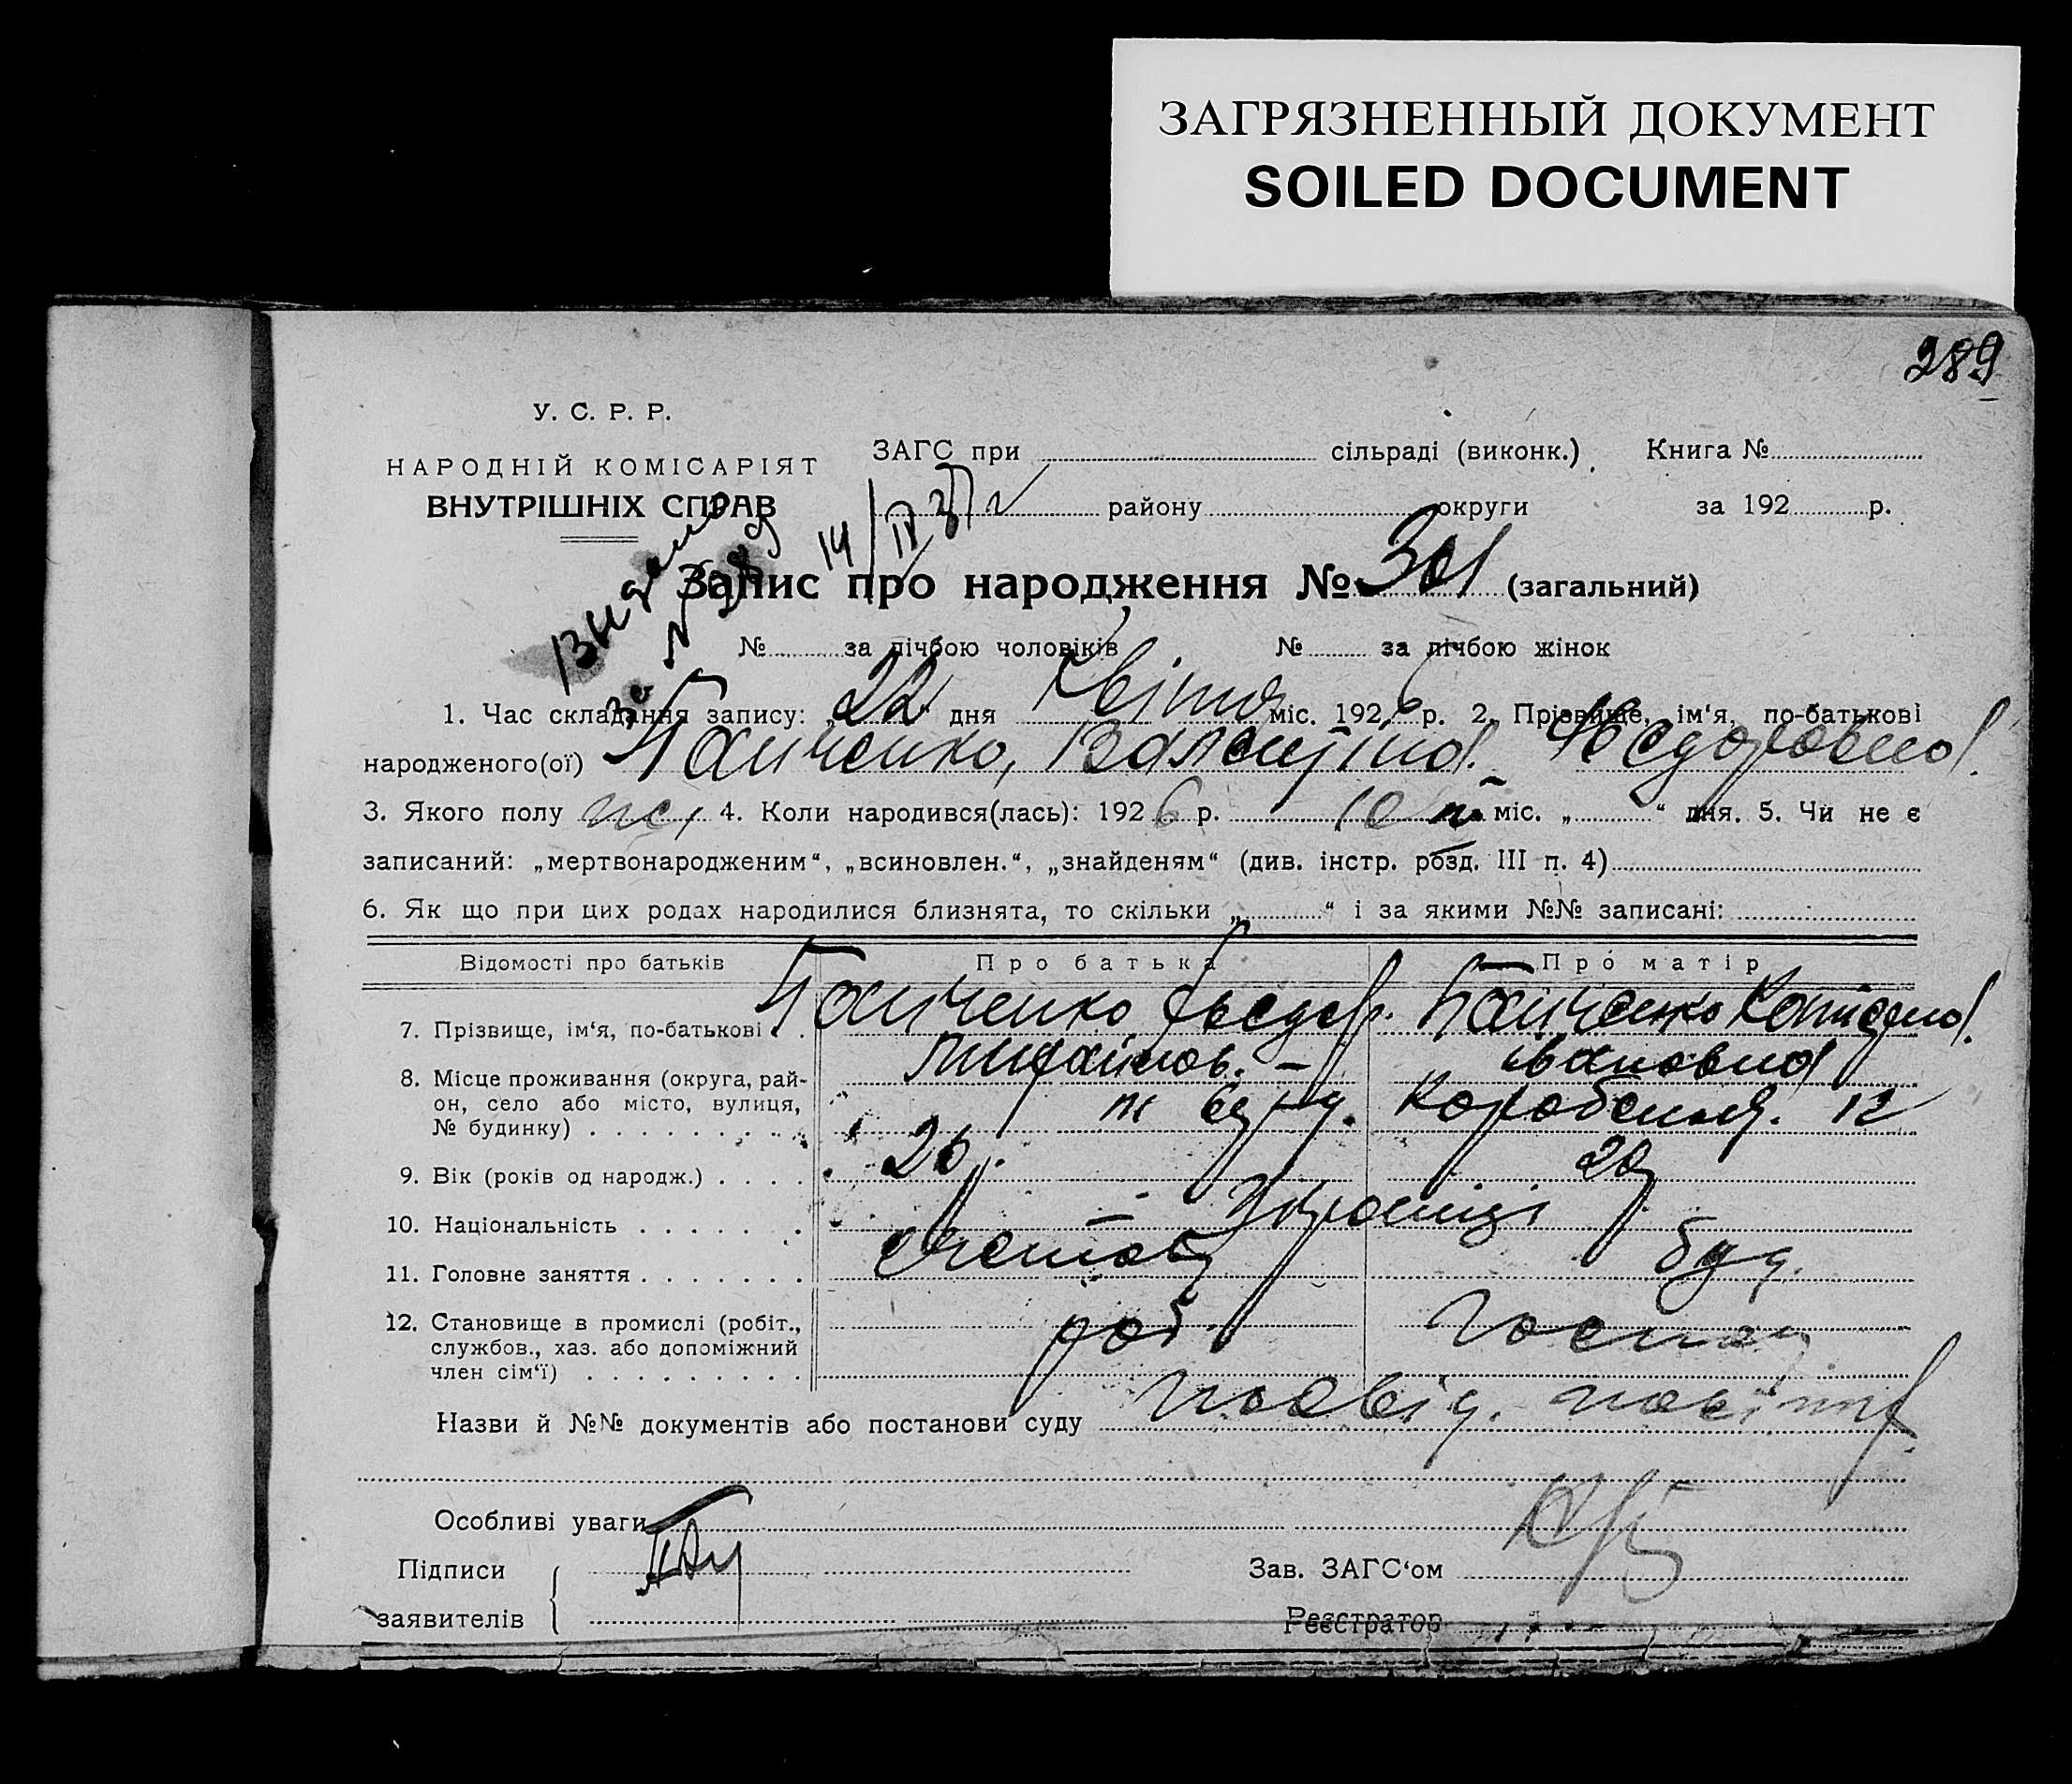 ЗАГРЯЗНЕННЫЙ ДОКУМЕНТ
SOILED DOCUMENT
289
У. С. Р. Р.
НАРОДНІЙ КОМІСАРІЯТ
ВНУТРІШНІХ СПРАВ
ЗАГС при сільраді (виконк.) Книга №
району округи за 192 р.
Видано
за №
14/IV 37 г
Запис про народження № 301 (загальний)
№ за лічбою чоловіків № за лічбою жінок
1. Час складання запису: „22“ дня Квітня міс. 1926 р. 2. Прізвище, ім‘я, по-батькові
народженого(ої) Панченко, Валентіна Федоровна
3. Якого полу 4. Коли народився(лась): 1926 р. 10 міс. „ “ дня. 5. Чи не є
записаний: „мертвонародженим“, „всиновлен.“, „знайденям“ (див. інстр. розд. III п. 4)
6. Як що при цих родах народилися близнята, то скільки „ “ і за якими №№ записані:
Відомості про батьків Про батька Про матір
7. Прізвище, ім‘я, по-батькові Панченко Федор. Панченко
Михайлов. — Івановна
8. Місце проживання (округа, рай-
он, село або місто, вулиця,
№ будинку) Коробельн. 12
9. Вік (років од народж.) 26 20
10. Національність — Українці
11. Головне заняття
12. Становище в промислі (робіт.,
службов., хаз. або допоміжний
член сім‘ї) роб.
Назви й №№ документів або постанови суду посвід.
Особливі уваги
Підписи
заявителів
Зав. ЗАГС‘ом
Реєстратор